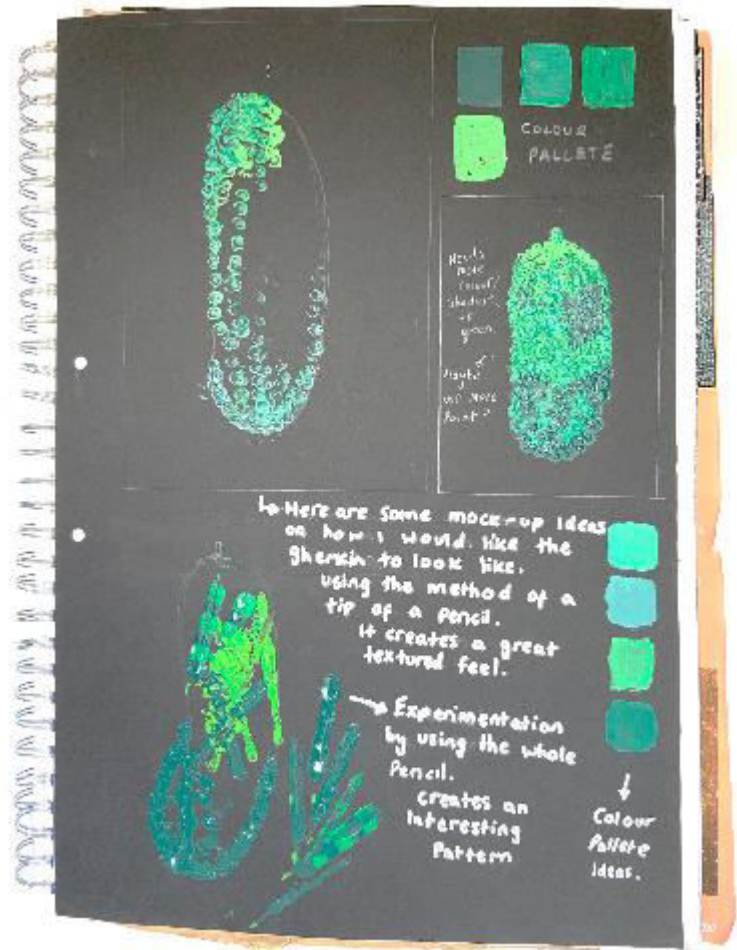 COLOUR
PALLETE
Needs
more
colour/
shades
of
green.
or
Maybe
use more
Paint?
Here are some mock-up ideas
on how i would like the
gherkin to look like.
using the method of a
tip of a pencil.
It creates a great
textured feel.
Experimentation
by using the whole
Pencil.
creates an
Interesting
Pattern
Colour
Pallete
Ideas.